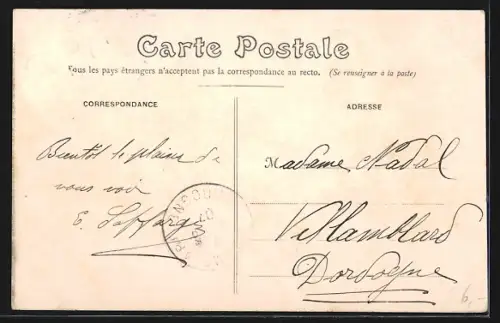 Carte Postale
Tous les pays étrangers n'acceptent pas la correspondance au recto. (Se renseigner à la poste)
CORRESPONDANCE
ADRESSE
Bientôt le plaisir de
vous voir
E. Laffarge
Madame Nadal
Villamblard
Dordogne
07
6,-